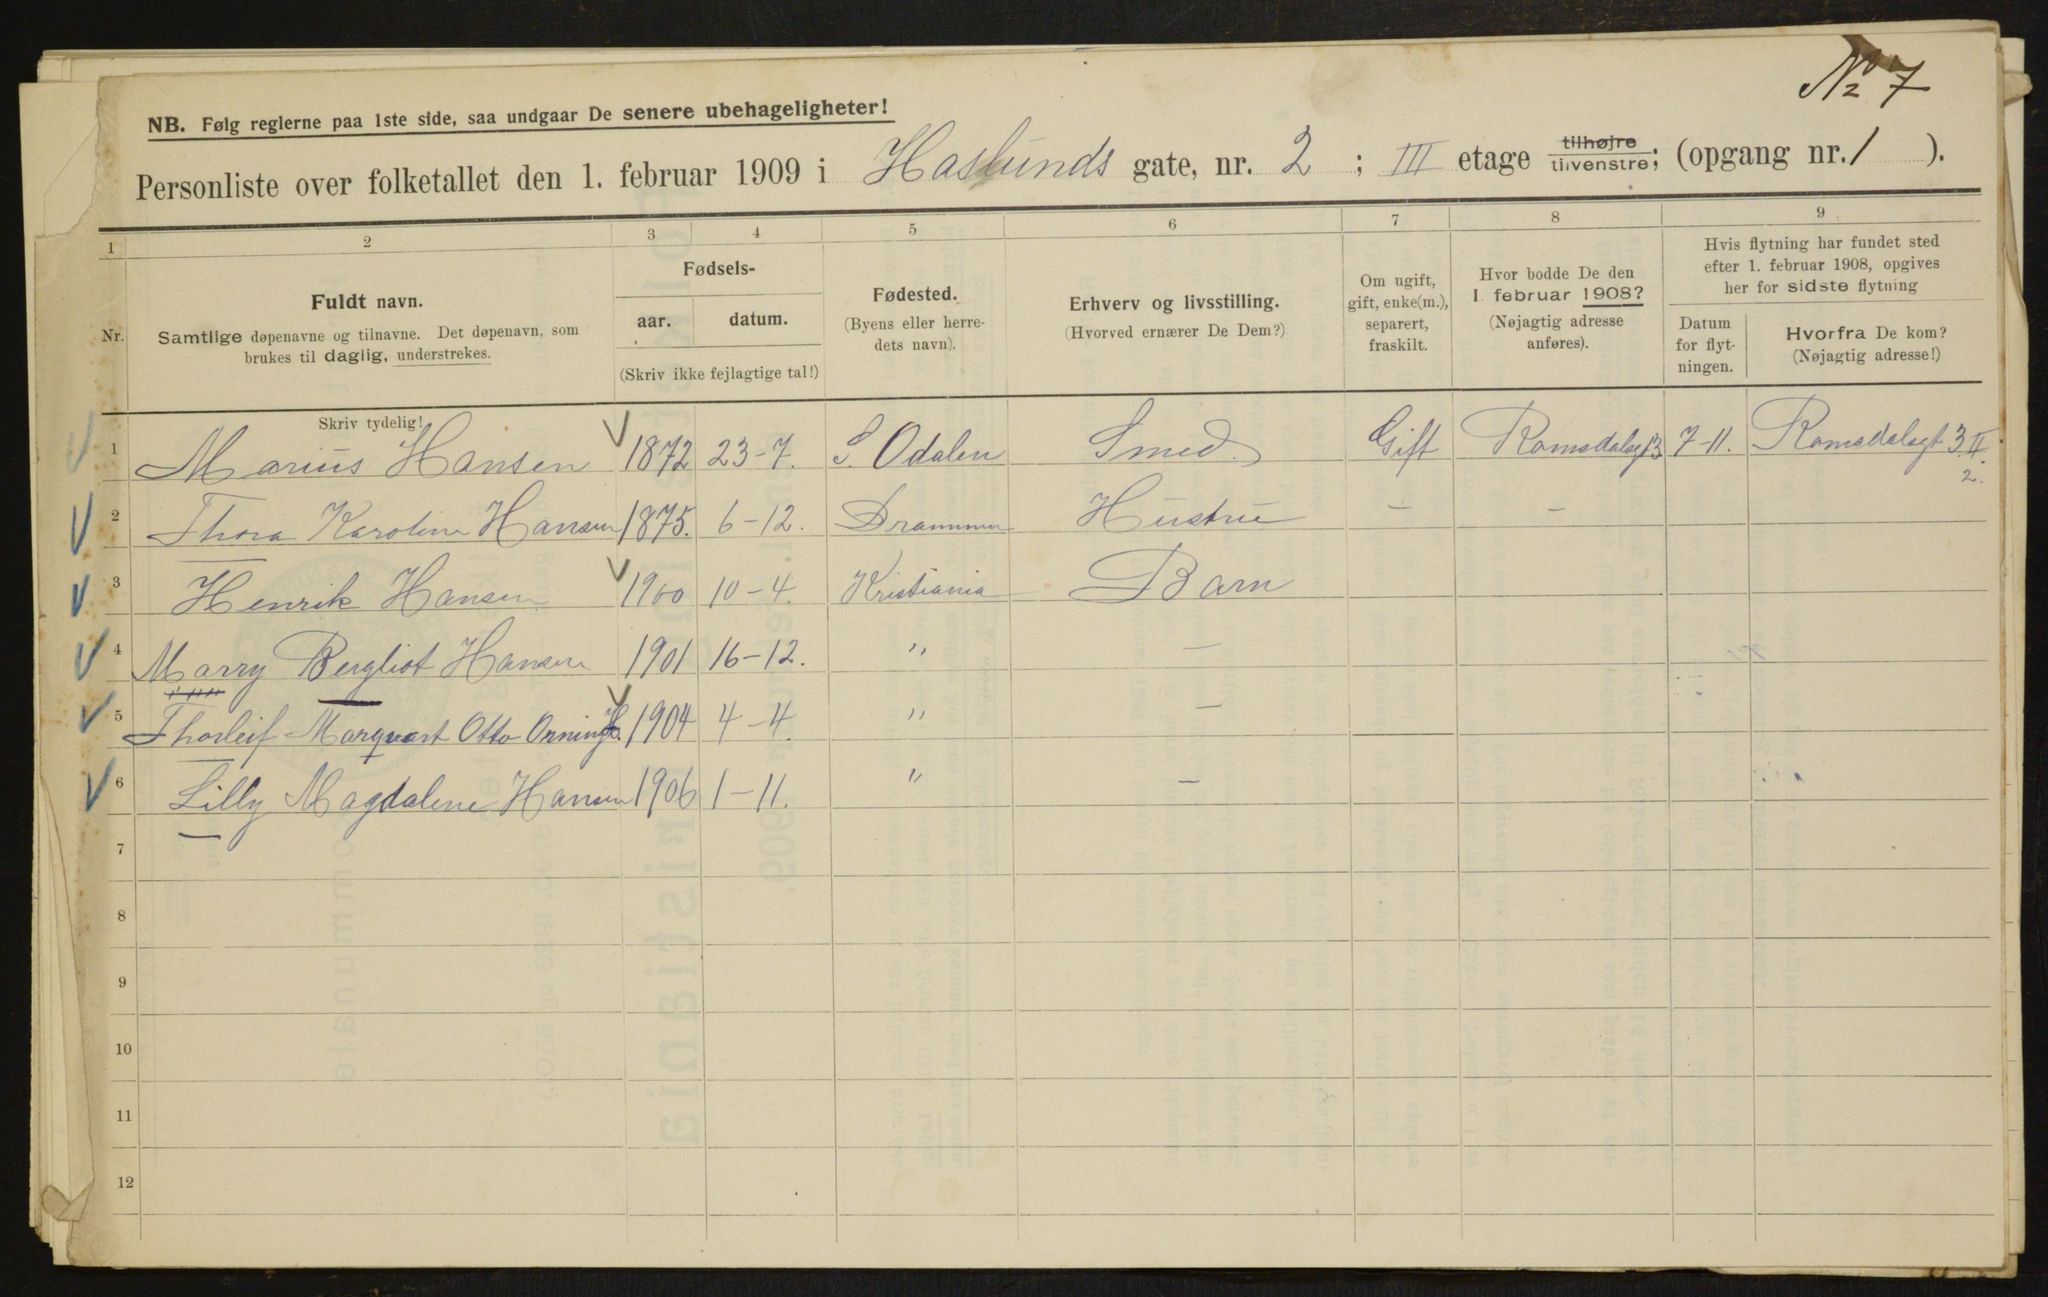 No 7
NB. Følg reglerne paa 1ste side, saa undgaar De senere ubehageligheter!
Personliste over folketallet den 1. februar 1909 i Haslunds gate, nr. 2 ; III etage tilhøjre tilvenstre; (opgang nr. 1 ).
1 2 3 4 5 6 7 8 9
Nr.
Fuldt navn.
Samtlige døpenavne og tilnavne. Det døpenavn, som
brukes til daglig, understrekes.
Fødsels-
aar. datum.
(Skriv ikke fejlagtige tal!)
Fødested.
(Byens eller herre-
dets navn).
Erhverv og livsstilling.
(Hvorved ernærer De Dem?)
Om ugift,
gift, enke(m.),
separert,
fraskilt.
Hvor bodde De den
1. februar 1908?
(Nøjagtig adresse
anføres).
Hvis flytning har fundet sted
efter 1. februar 1908, opgives
her for sidste flytning
Datum
for flyt-
ningen.
Hvorfra De kom?
(Nøjagtig adresse!)
Skriv tydelig!
1 Marius Hansen 1872 23-7. S. Odalen Smed. Gift Romsdalsgt 3 7-11. Romsdalsgt 3 II
2.
2 Thora Karoline Hansen 1875. 6-12. Drammen Hustru — —
3 Henrik Hansen 1900 10-4. Kristiania Barn
4 Marry Bergliot Hansen 1901 16-12. " —
5 Thorleif Marquart Otto Orning H. 1904 4-4. " —
6 Lilly Magdalene Hansen 1906 1-11. " —
7
8
9
10
11
12